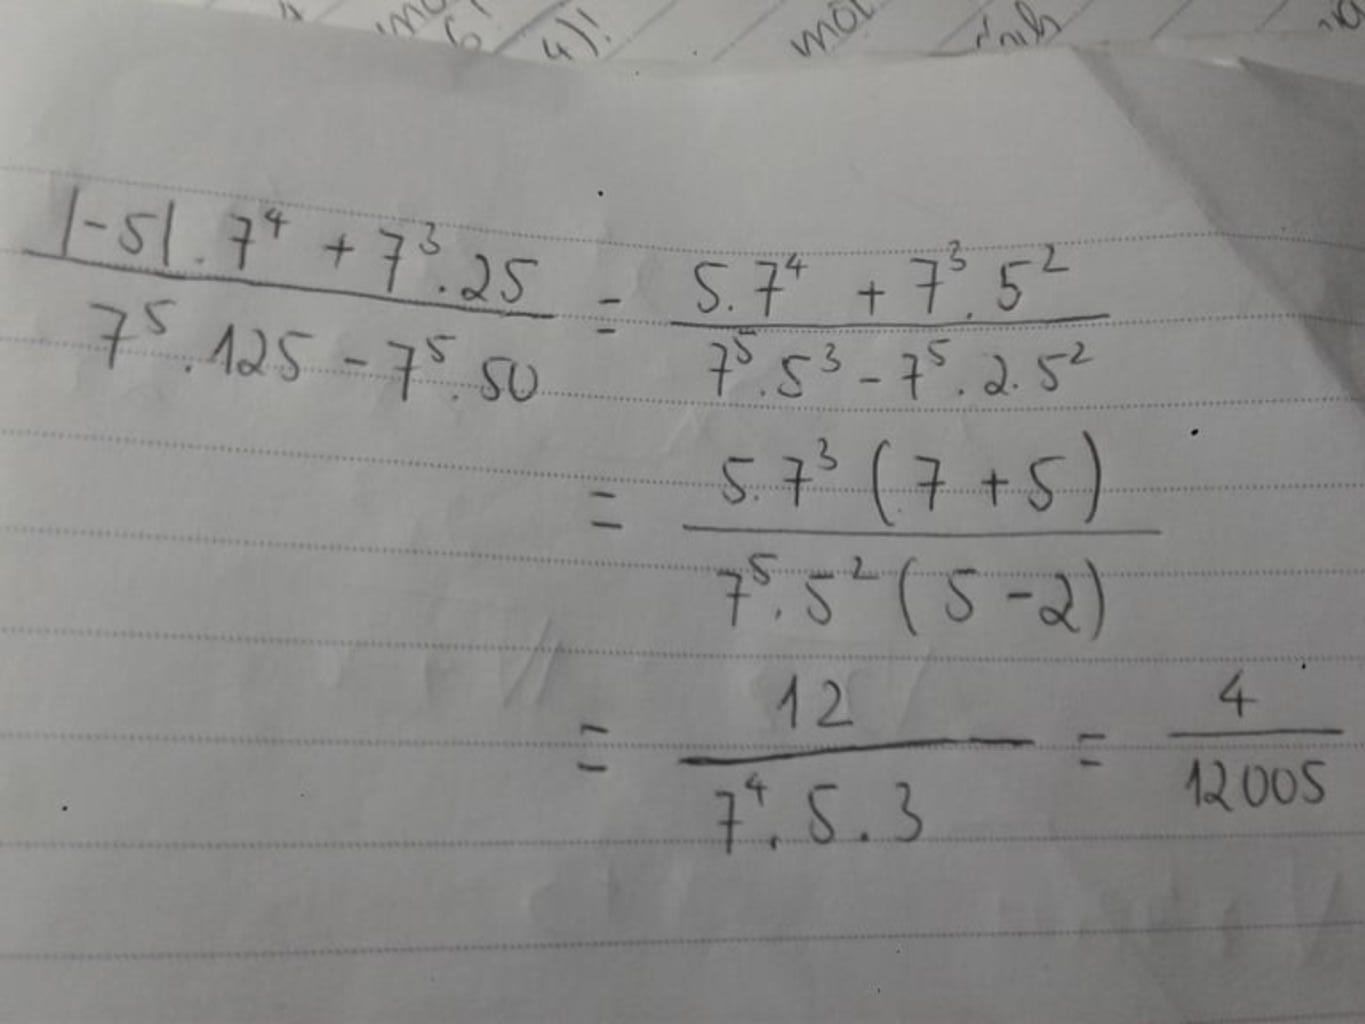 4)!
|-5|.7⁴ + 7³.25 / 7⁵.125 - 7⁵.50 = 5.7⁴ + 7³.5² / 7⁵.5³ - 7⁵.2.5²
= 5.7³(7 + 5) / 7⁵.5²(5 - 2)
= 12 / 7⁴.5.3 = 4 / 12005